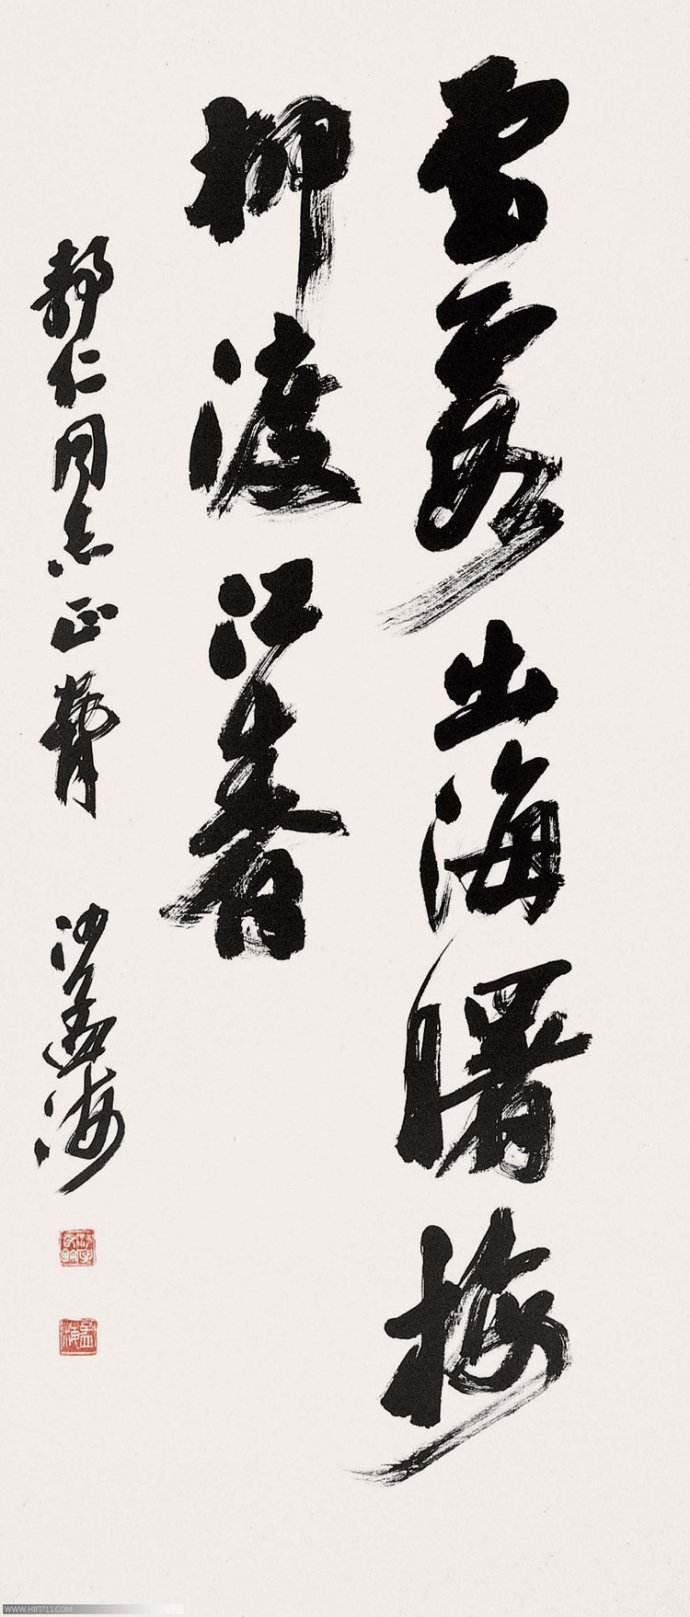 雲霞出海曙梅
柳渡江春
靜仁同志正
沙孟海
孟海